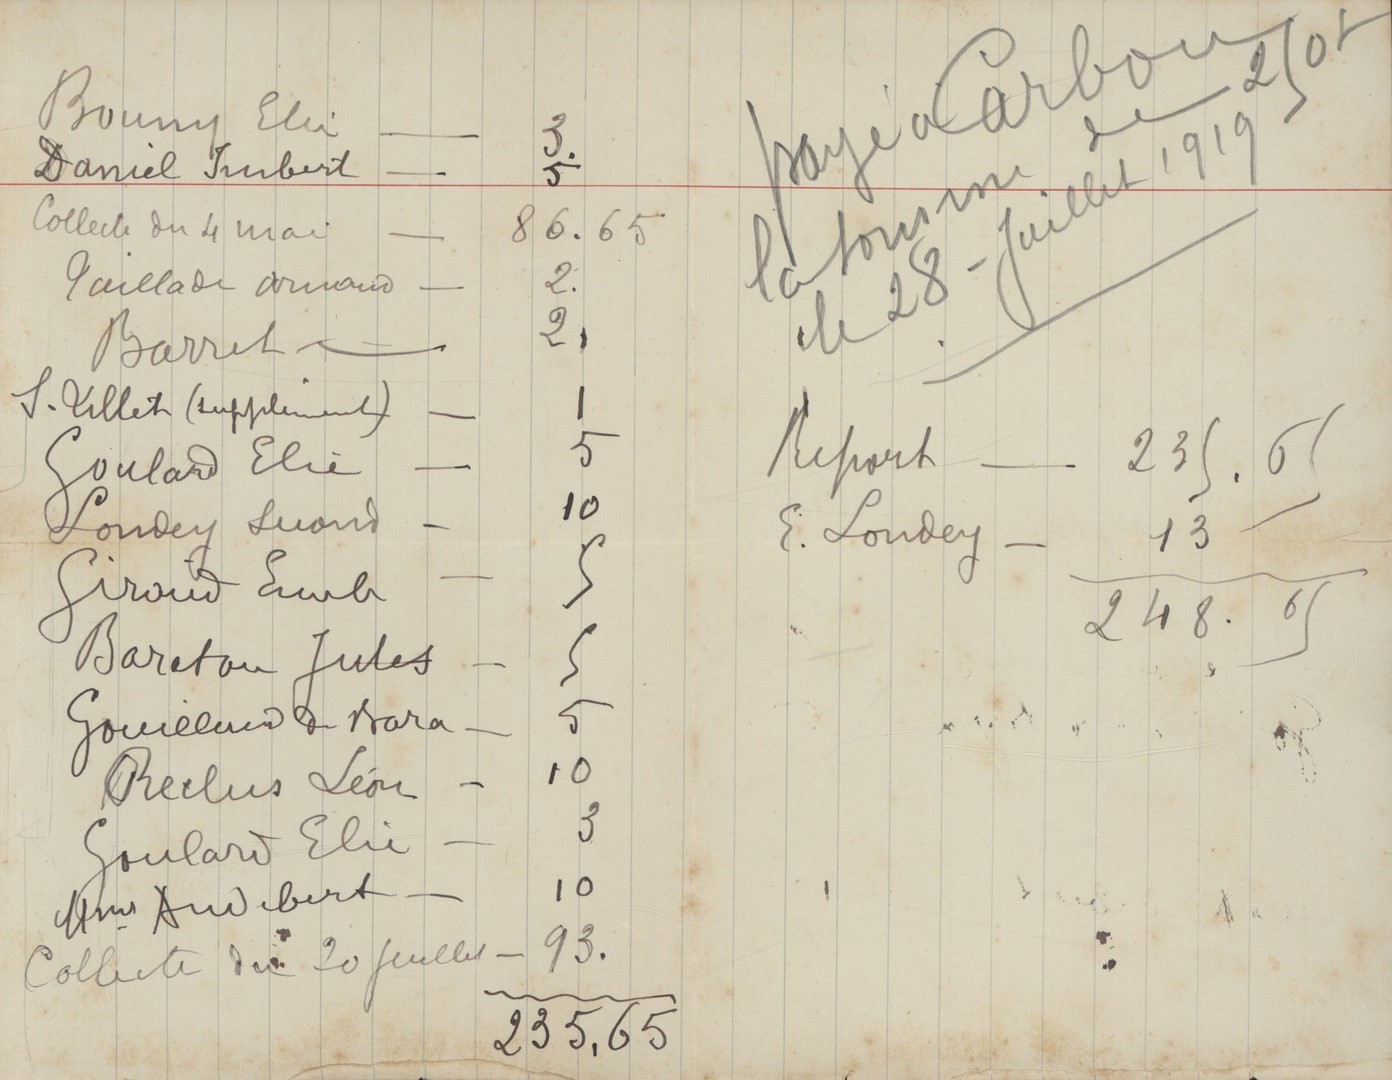 Bouny Elie — 3.
Daniel Imbert — 5
Collecte du 4 mai — 86.65
Taillade Armand — 2.
Barret — 2.
S. Villet (supplément) — 1
Goulard Elie — 5
Londey — 10
Giraud — 5
Bareton Jules — 5
Gouillaud de — 5
Reclus Léon — 10
Goulard Elie — 3
Mme Audebert — 10
Collecte du 20 juillet — 93.
235,65
payé à Carbou
la somme de 250f
le 28 - Juillet 1919
Report — 235.65
E. Londey — 13
248.65